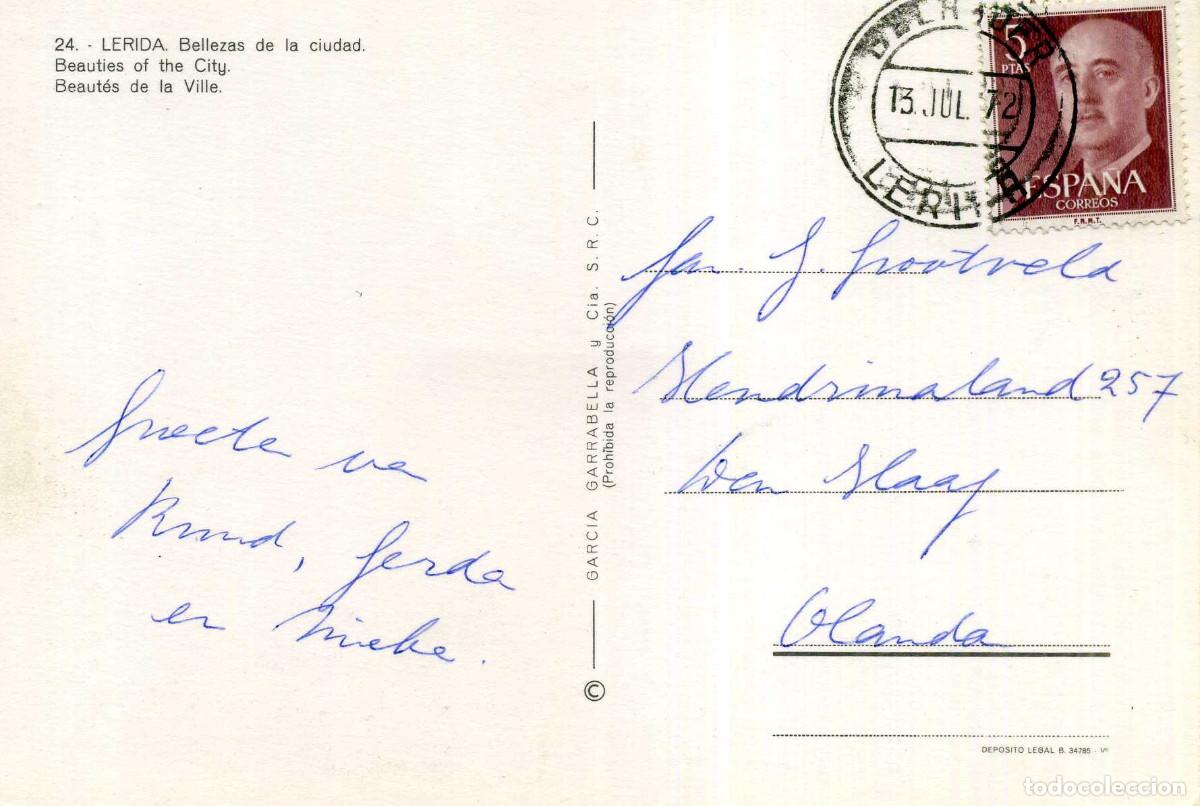 24. - LERIDA. Bellezas de la ciudad.
Beauties of the City.
Beautés de la Ville.
5
PTAS
ESPAÑA
CORREOS
F.N.M.T.
13. JUL. 72
LERIDA
Fam. G. Grootveld
Hendrinaland 257
Den Haag
Olanda
Groeten van
Ruud, Gerda
en Mieke.
GARCIA GARRABELLA y Cia. S.R.C.
(Prohibida la reproducción)
©
DEPOSITO LEGAL B. 34785 - VII
todocoleccion